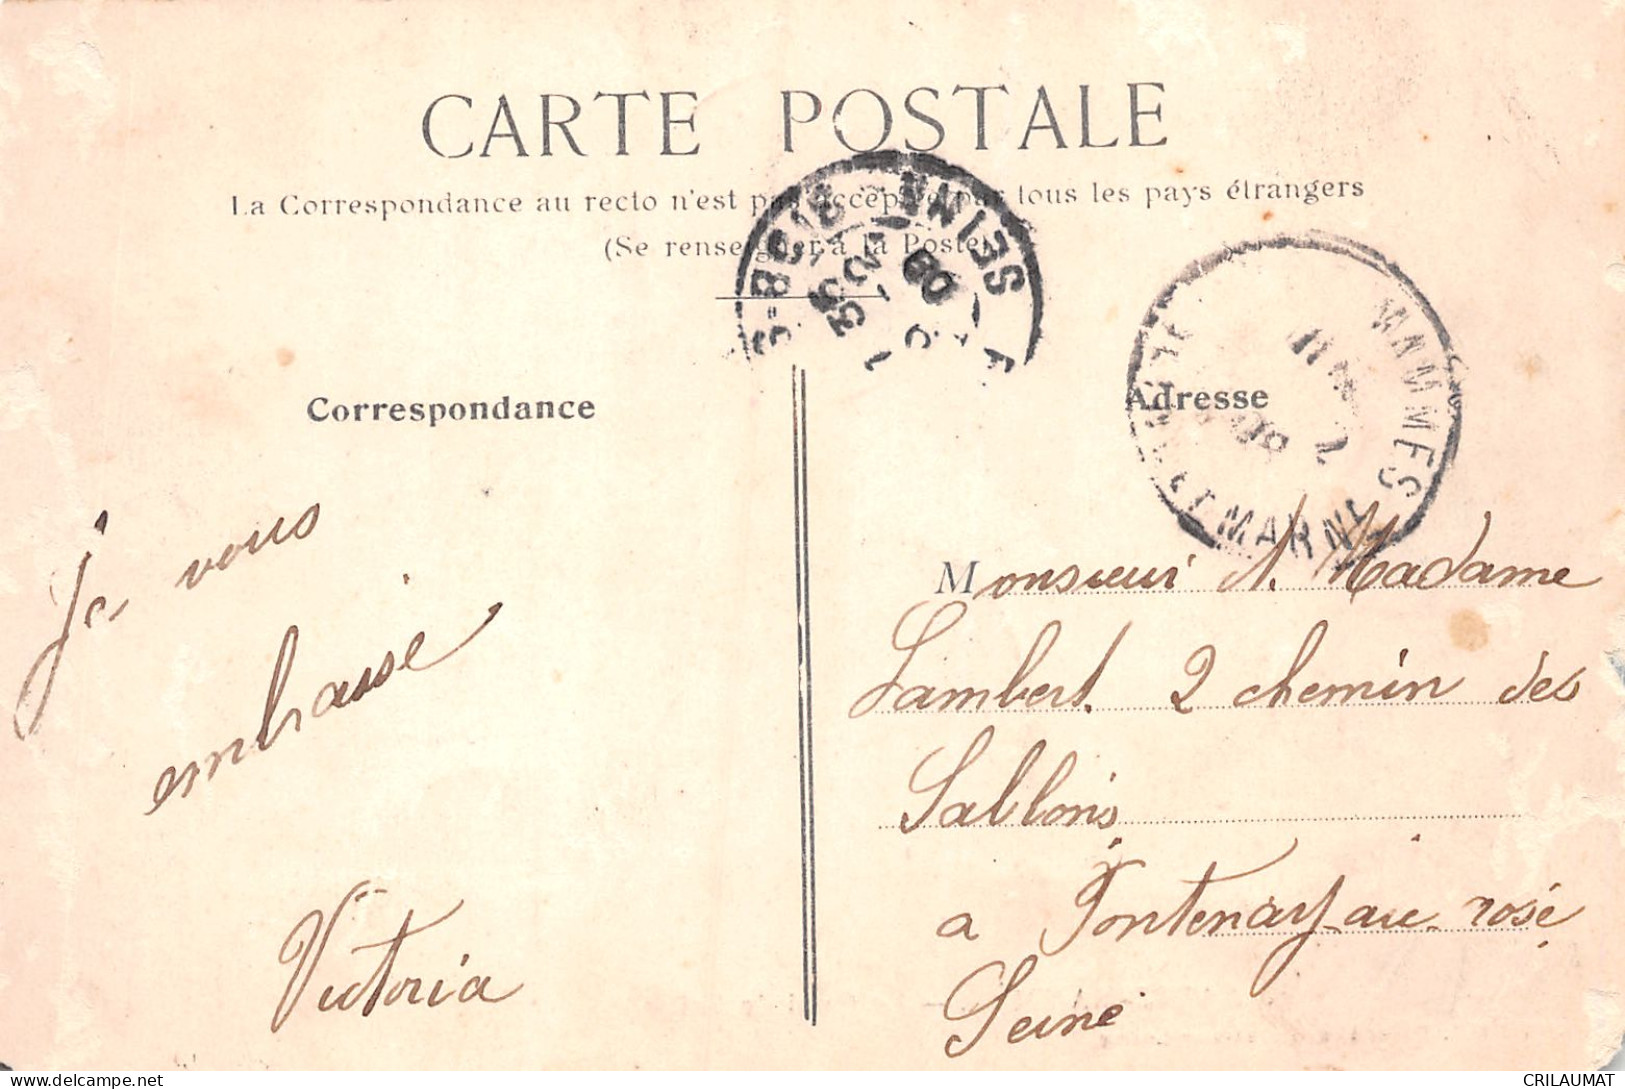 CARTE POSTALE
La Correspondance au recto n'est pas acceptée par tous les pays étrangers
(Se renseigner à la Poste)
Correspondance
Adresse
MARNE
SEINE
Je vous
embrasse
Victoria
Monsieur Madame
Lambert. 2 chemin des
Sablons
a Fontenay-au-rose
Seine
delcampe.net
CRILAUMAT